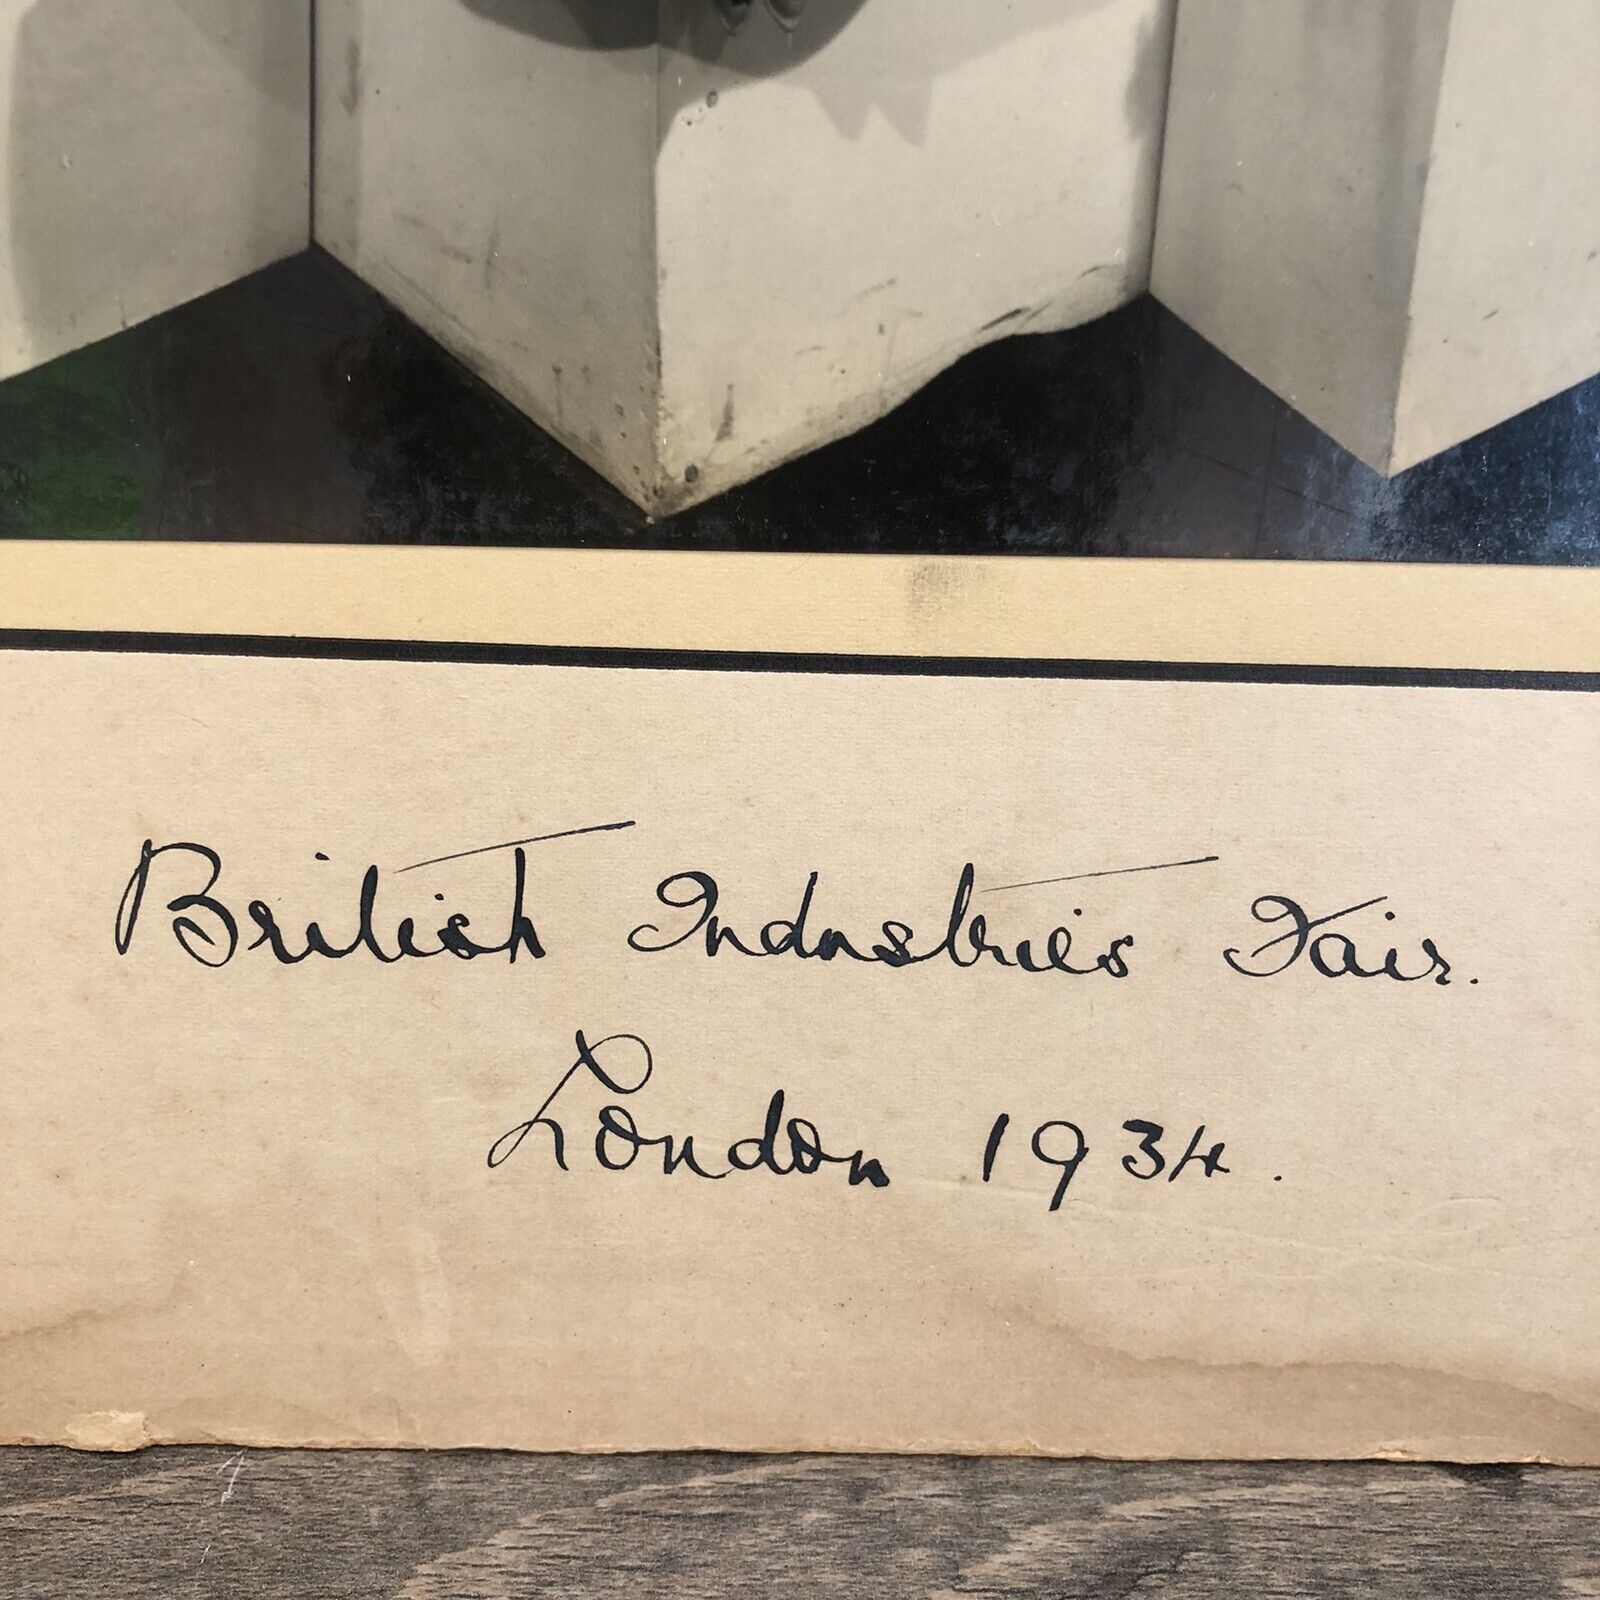 British Industries Fair.
London 1934.